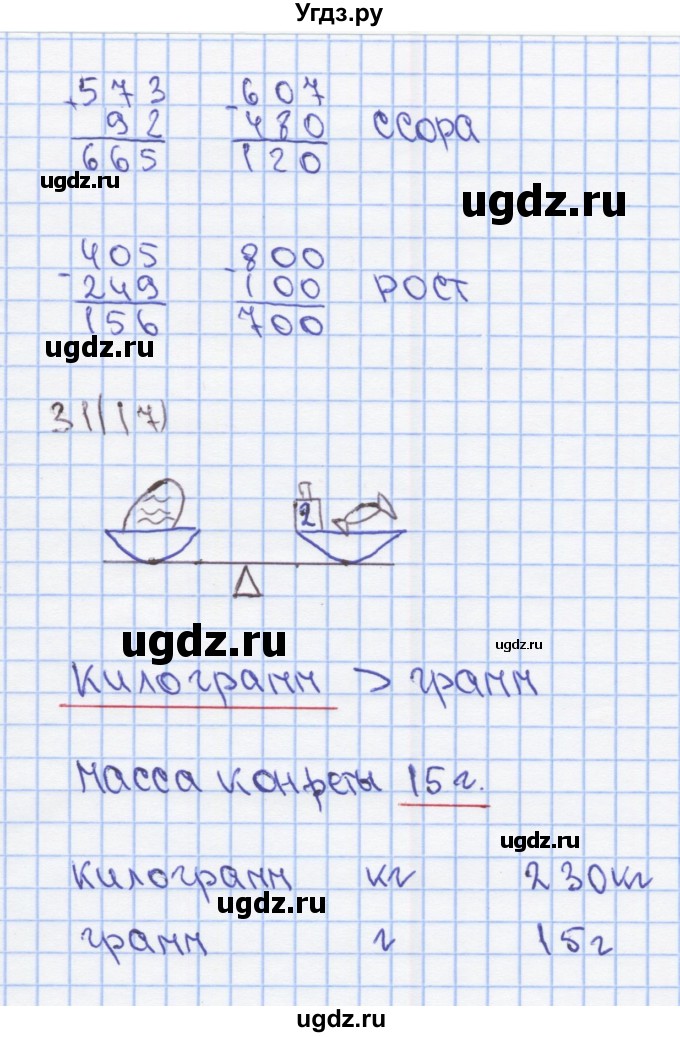 Угдз.ру
+573 -607
92 480 ссора
665 120
ugdz.ru
ugdz.ru
-405 -800
249 100 рост
156 700
ugdz.ru
31(17)
2
ugdz.ru
ugdz.ru
килограмм > грамм
масса конфеты 15 г.
ugdz.ru
килограмм кг 230кг
ugdz.ru
грамм г 15г
ugdz.ru